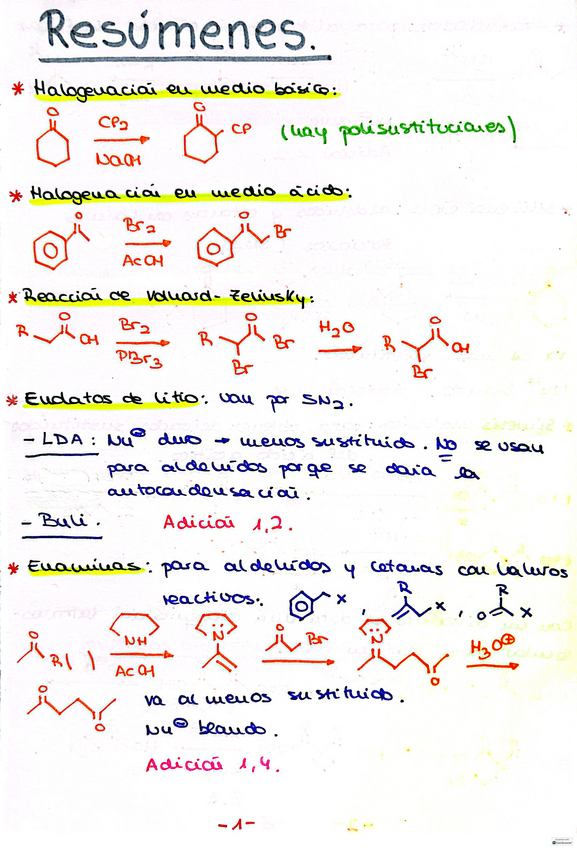 Resúmenes.
* Halogenación en medio básico:
O O
Cl2 Cl (hay polisustituciones)
NaOH
* Halogenación en medio ácido:
O Br2 O Br
AcOH
* Reacción de Volhard-Zelinsky:
R O OH Br2 PBr3 R O Br Br H2O R O OH Br
* Enolatos de litio: van por SN2.
- LDA: Nu⊖ duro → menos sustituido. No se usan
para aldehidos porqe se daria la
autocondensación.
- Buli. Adición 1,2.
* Enaminas: para aldehidos y cetonas con haluros
reactivos: X , R X , O R X
O R( ) NH AcOH N O Br N O H3O⊕
O O va al menos sustituido.
Nu⊖ blando.
Adición 1,4.
-1-